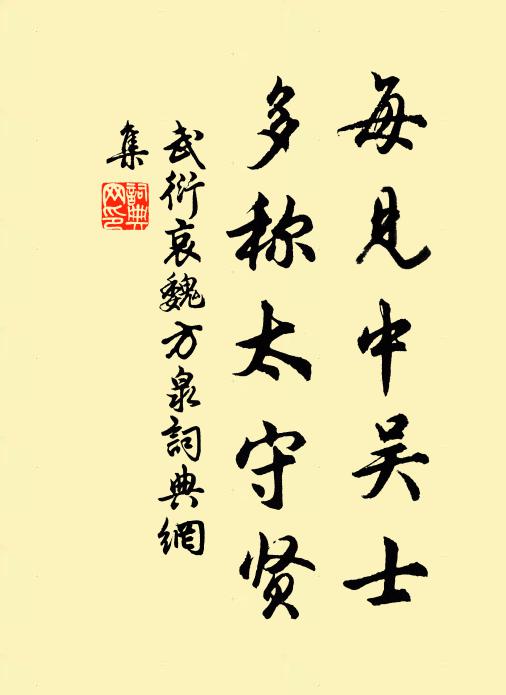 每见中吴士
多称太守贤
武衍哀魏方泉詞典網
集
詞典
网印